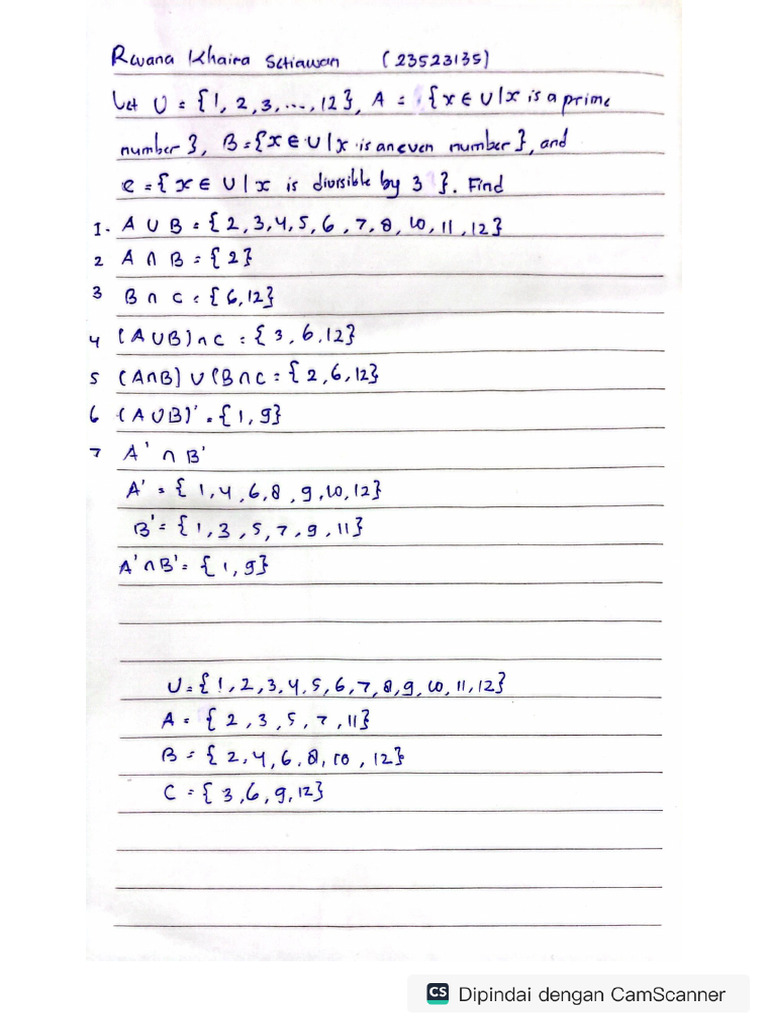 Rwana Khaira Setiawan (23523135)
Let U = {1, 2, 3, ..., 12}, A = {x ∈ U | x is a prime
number}, B = {x ∈ U | x is an even number}, and
C = {x ∈ U | x is divisible by 3}. Find
1. A ∪ B = {2, 3, 4, 5, 6, 7, 8, 10, 11, 12}
2 A ∩ B = {2}
3 B ∩ C = {6, 12}
4 (A ∪ B) ∩ C = {3, 6, 12}
5 (A∩B) ∪ (B ∩ C = {2, 6, 12}
6 (A ∪ B)' = {1, 9}
7 A' ∩ B'
A' = {1, 4, 6, 8, 9, 10, 12}
B' = {1, 3, 5, 7, 9, 11}
A' ∩ B' = {1, 9}
U = {1, 2, 3, 4, 5, 6, 7, 8, 9, 10, 11, 12}
A = {2, 3, 5, 7, 11}
B = {2, 4, 6, 8, 10, 12}
C = {3, 6, 9, 12}
CS Dipindai dengan CamScanner